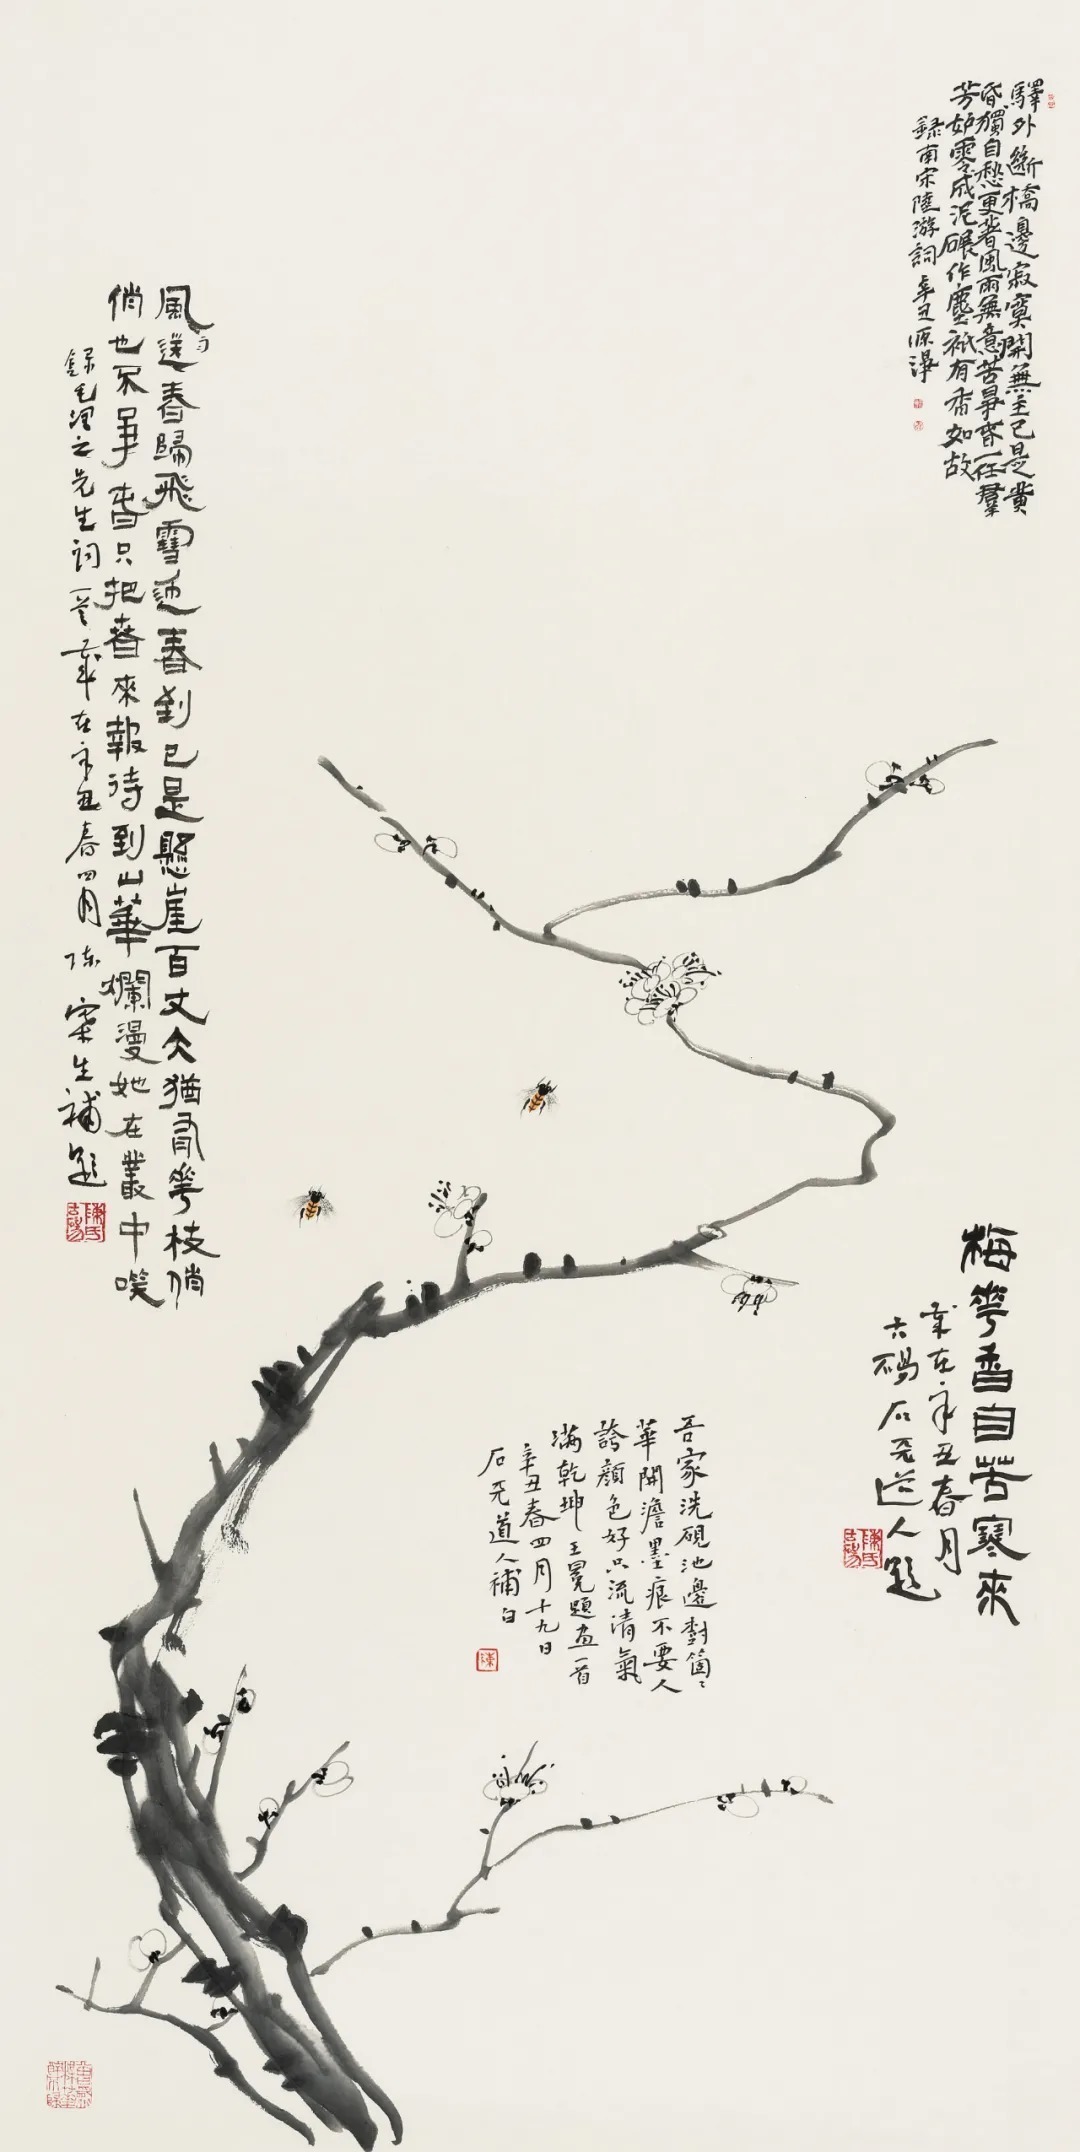 驛外斷橋邊寂寞開無主已是黃
昏獨自愁更著風雨無意苦爭春一任羣
芳妒零成泥碾作塵祇有香如故
錄南宋陸游詞 辛丑
風雨送春歸飛雪迎春到已是懸崖百丈冰猶有花枝俏
俏也不爭春只把春來報待到山華爛漫她在叢中笑
錄毛潤之先生詞一首 歲在辛丑春四月 陳 生補題
梅花香自苦寒來
歲在辛丑春月
古碭石 道人題
吾家洗硯池邊對箇〻
華開澹墨痕不要人
誇顏色好只流清氣
滿乾坤 王冕題畫一首
辛丑春四月十九日
石 道人補白